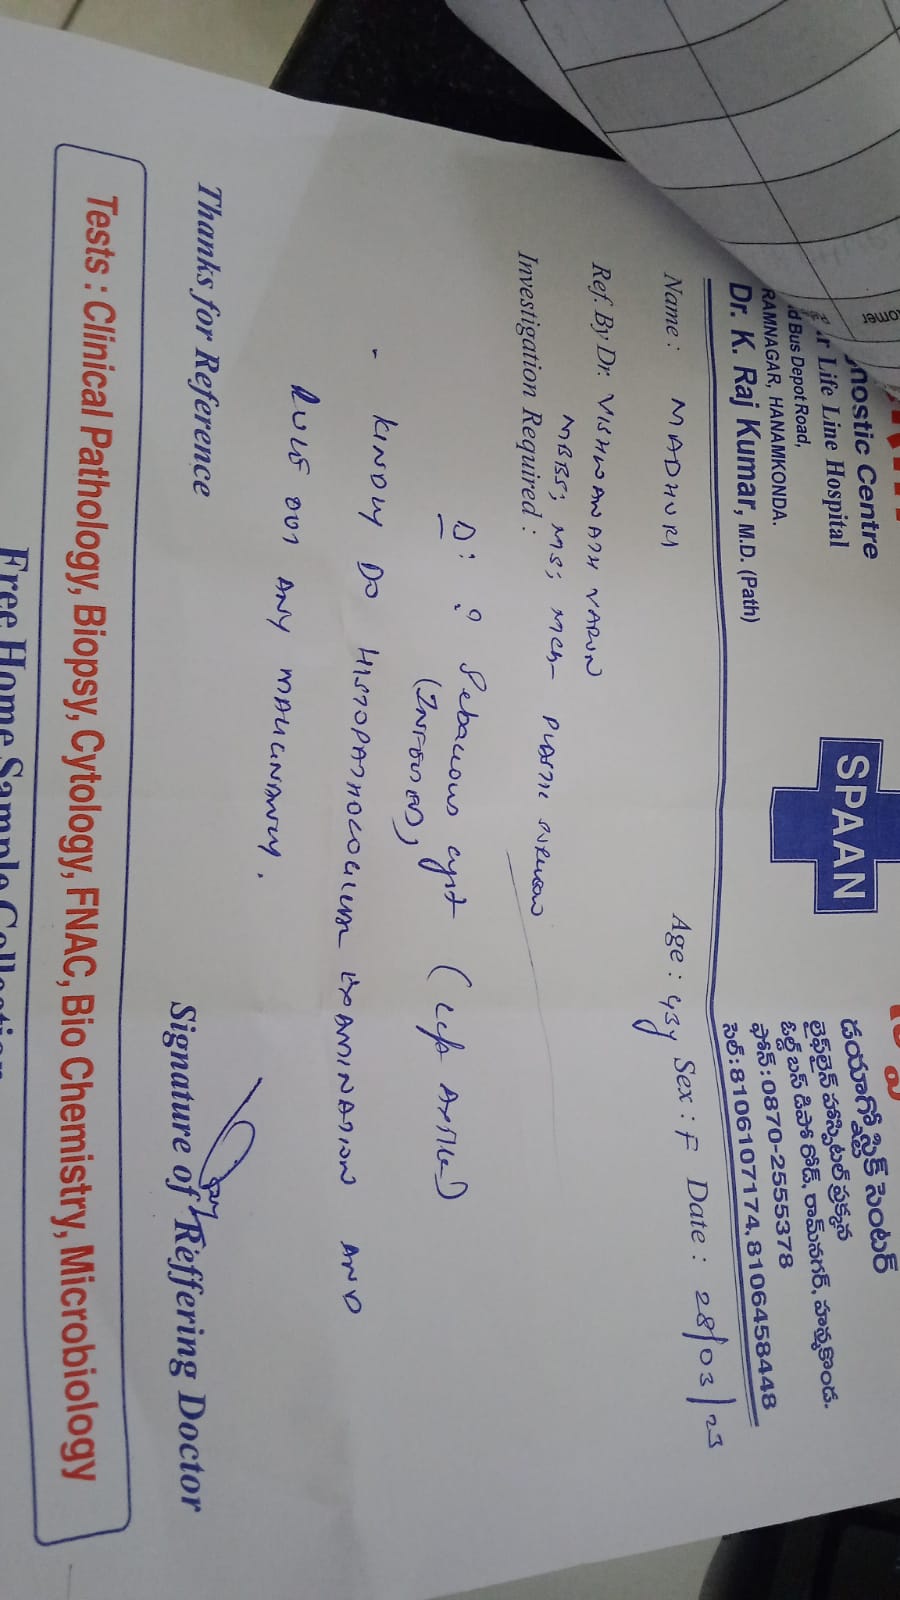 nostic Centre
r Life Line Hospital
d Bus Depot Road,
RAMNAGAR, HANAMKONDA.
Dr. K. Raj Kumar, M.D. (Path)
SPAAN
డయాగ్నోస్టిక్ సెంటర్
లైఫ్‌లైన్ హాస్పిటల్ ప్రక్కన
ఓల్డ్ బస్ డిపో రోడ్, రామ్‌నగర్, హన్మకొండ.
ఫోన్ : 0870-2555378
సెల్ : 8106107174, 8106458448
Name : MADHURI Age : 43y Sex : F Date : 28/03/23
Ref. By Dr. VISHWANATH VARUN
MBBS; MS; MCh- PLASTIC SURGEON
Investigation Required :
D: ? Sebaceous cyst (Lt AXILLA)
(INFECTED)
- KINDLY DO HISTOPATHOLOGICAL EXAMINATION AND
RULE OUT ANY MALIGNANCY.
Thanks for Reference Signature of Reffering Doctor
Tests : Clinical Pathology, Biopsy, Cytology, FNAC, Bio Chemistry, Microbiology
Free Home Sample Collection